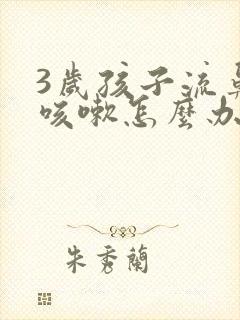 3歲孩子流鼻
咳嗽怎麼办
朱秀蘭